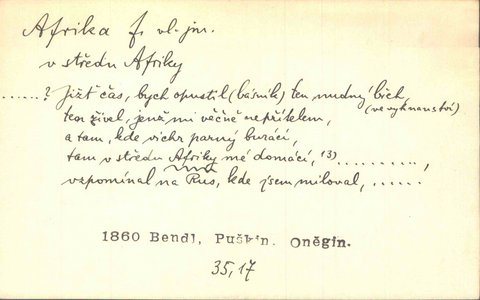 Afrika f. vl. jm.
v středu Afriky
......? Jižť čas, bych opustil (básník) ten nudný břeh
(ve vyhnanství)
ten živel, jenž mi věčně nepřítelem,
a tam, kde vichr parný burácí,
tam v středu Afriky mé domácí, 13) ..........,
vzpomínal na Rus, kde jsem miloval, ......
1860 Bendl, Puškin. Oněgin.
35,17